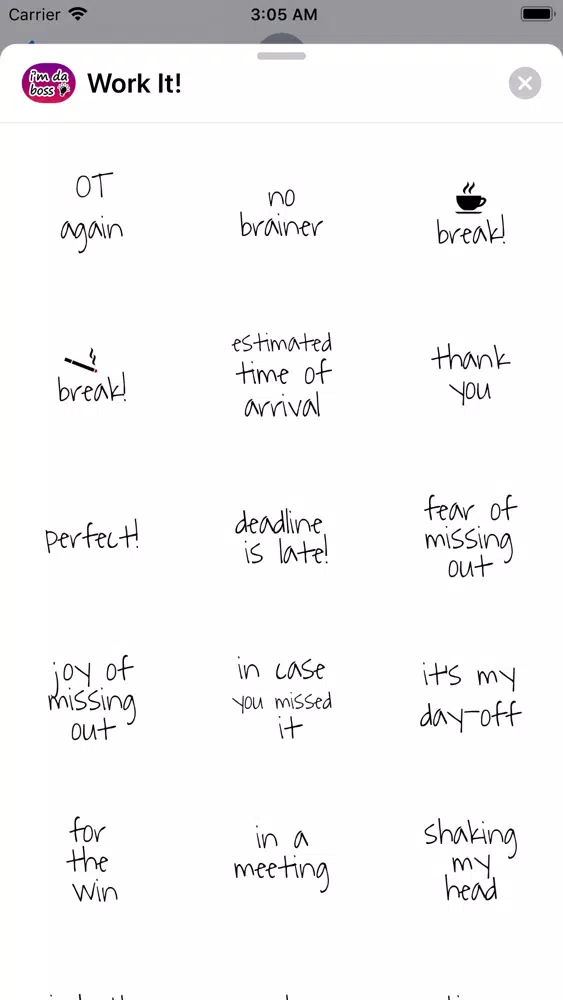 Carrier
3:05 AM
i'm da
boss
Work It!
OT
again
no
brainer
break!
break!
estimated
time of
arrival
thank
you
perfect!
deadline
is late!
fear of
missing
out
joy of
missing
out
in case
you missed
it
it's my
day-off
for
the
win
in a
meeting
shaking
my
head